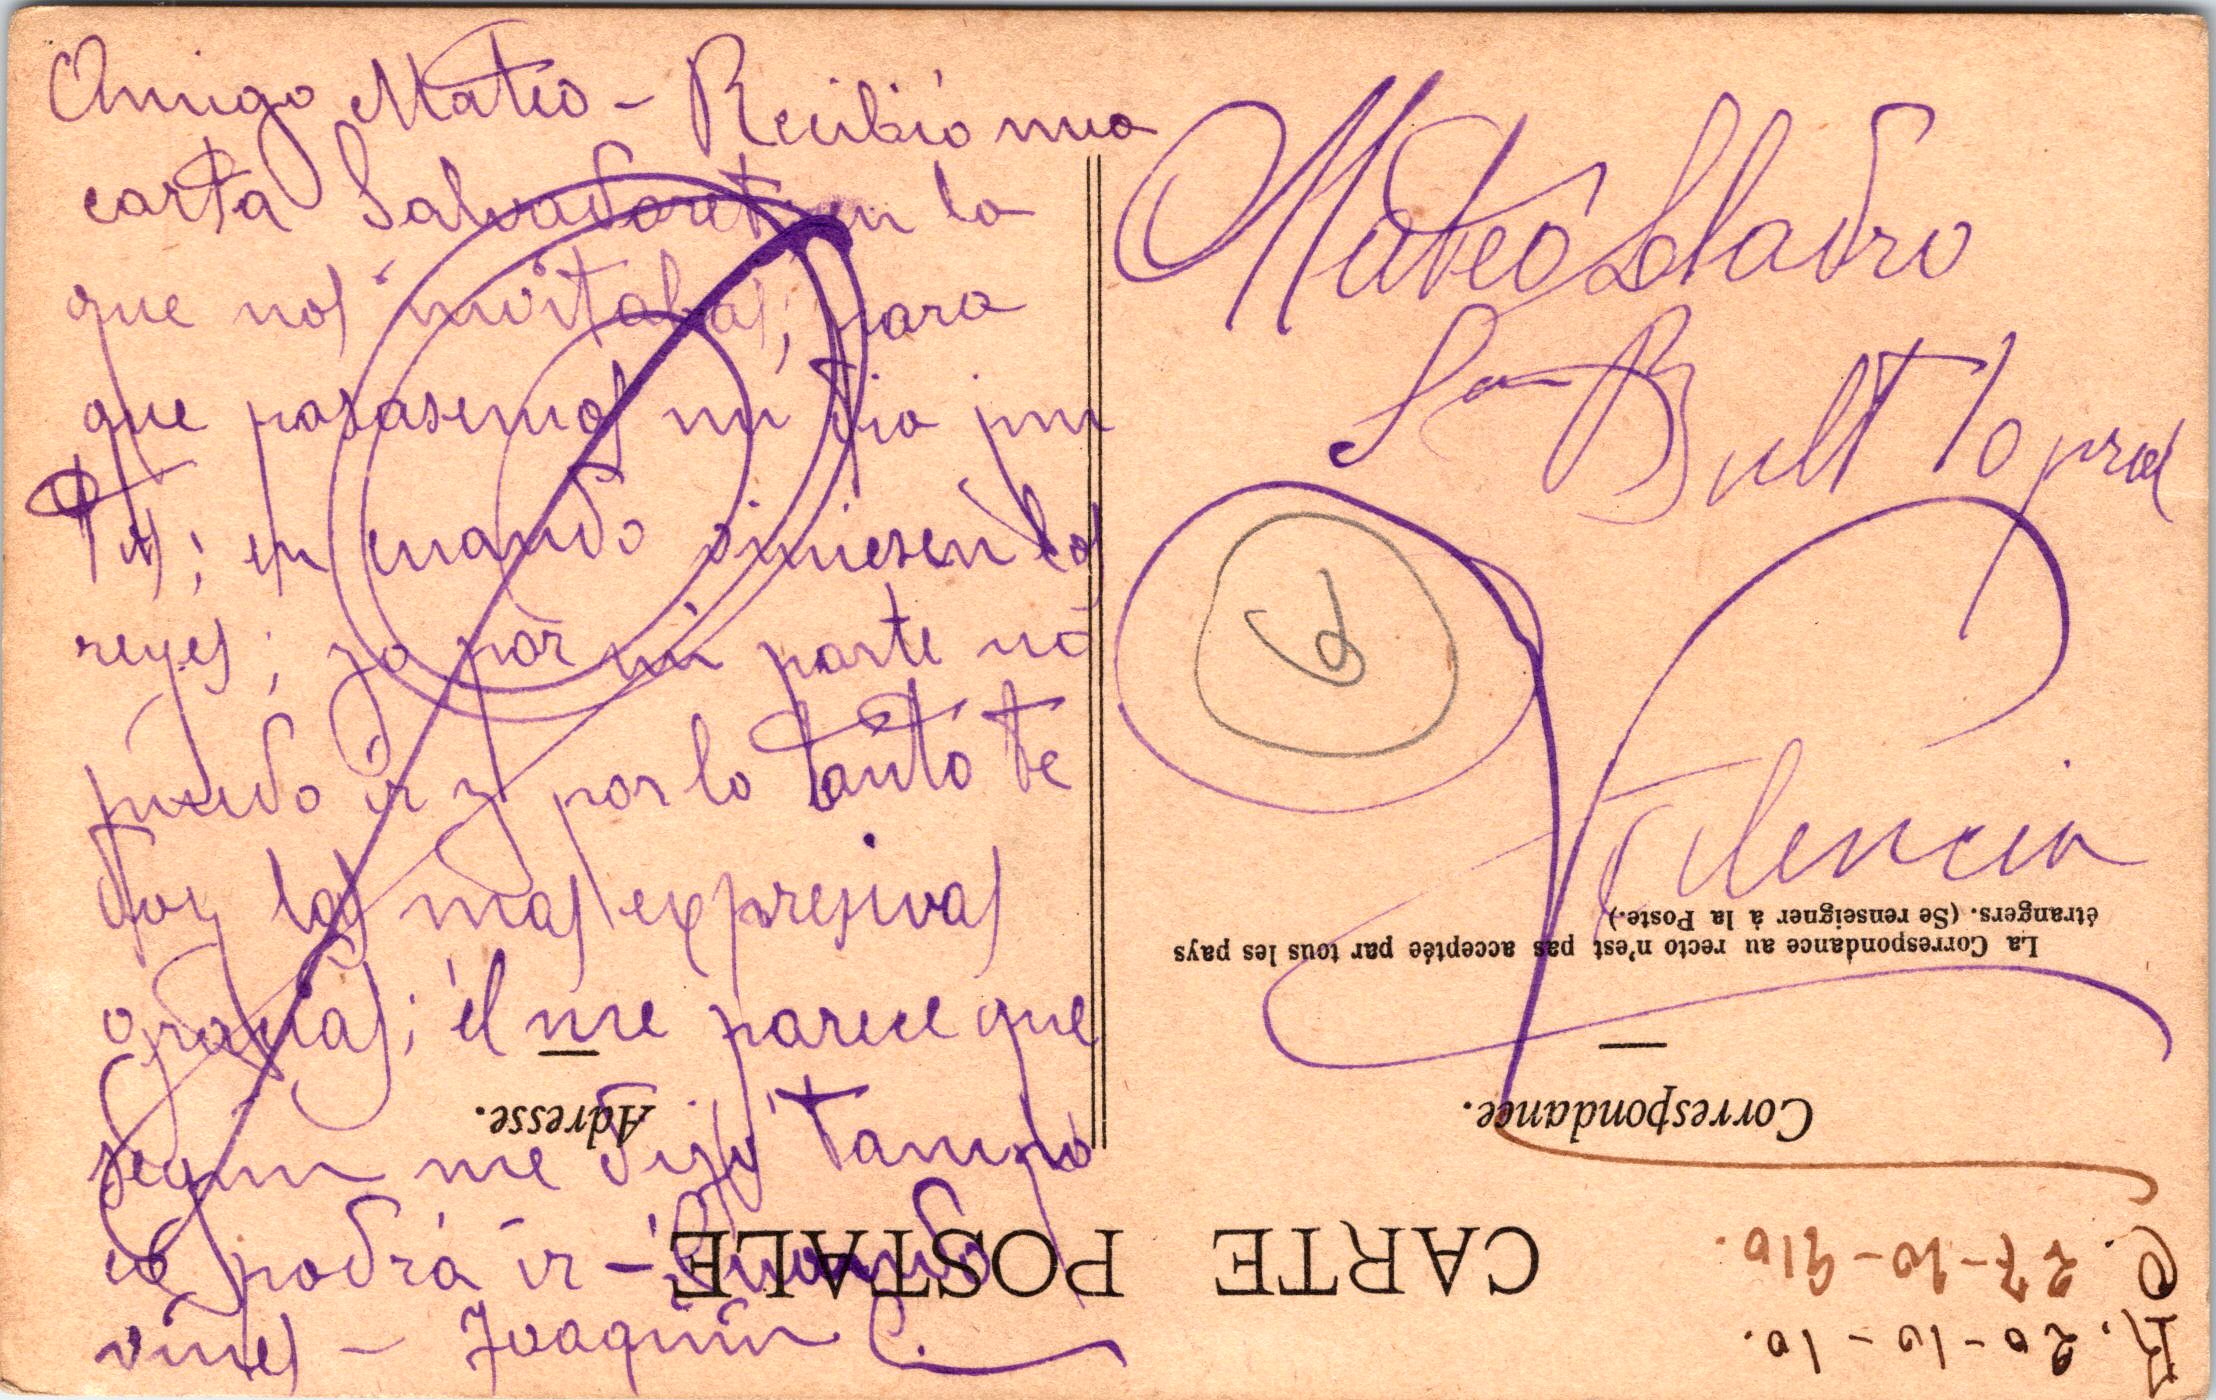 Amigo Mateo - Recibió una
carta Salvadoret en la
que nos invitabas; para
que pasasemos un dia jun
tos; en cuando viniesen los
reyes; yo por mi parte no
puedo ir y por lo tanto te
doy las mas expresivas
gracias; él me parece que
segun me dijo tampoco
podrá ir -
vines - Joaquin C.
Mateo Lladro
San Bult 10 pral
Valencia
6
CARTE POSTALE
Correspondance.
Adresse.
La Correspondance au recto n'est pas acceptée par tous les pays
étrangers. (Se renseigner à la Poste.)
R. 20-10-10.
C. 27-10-910.